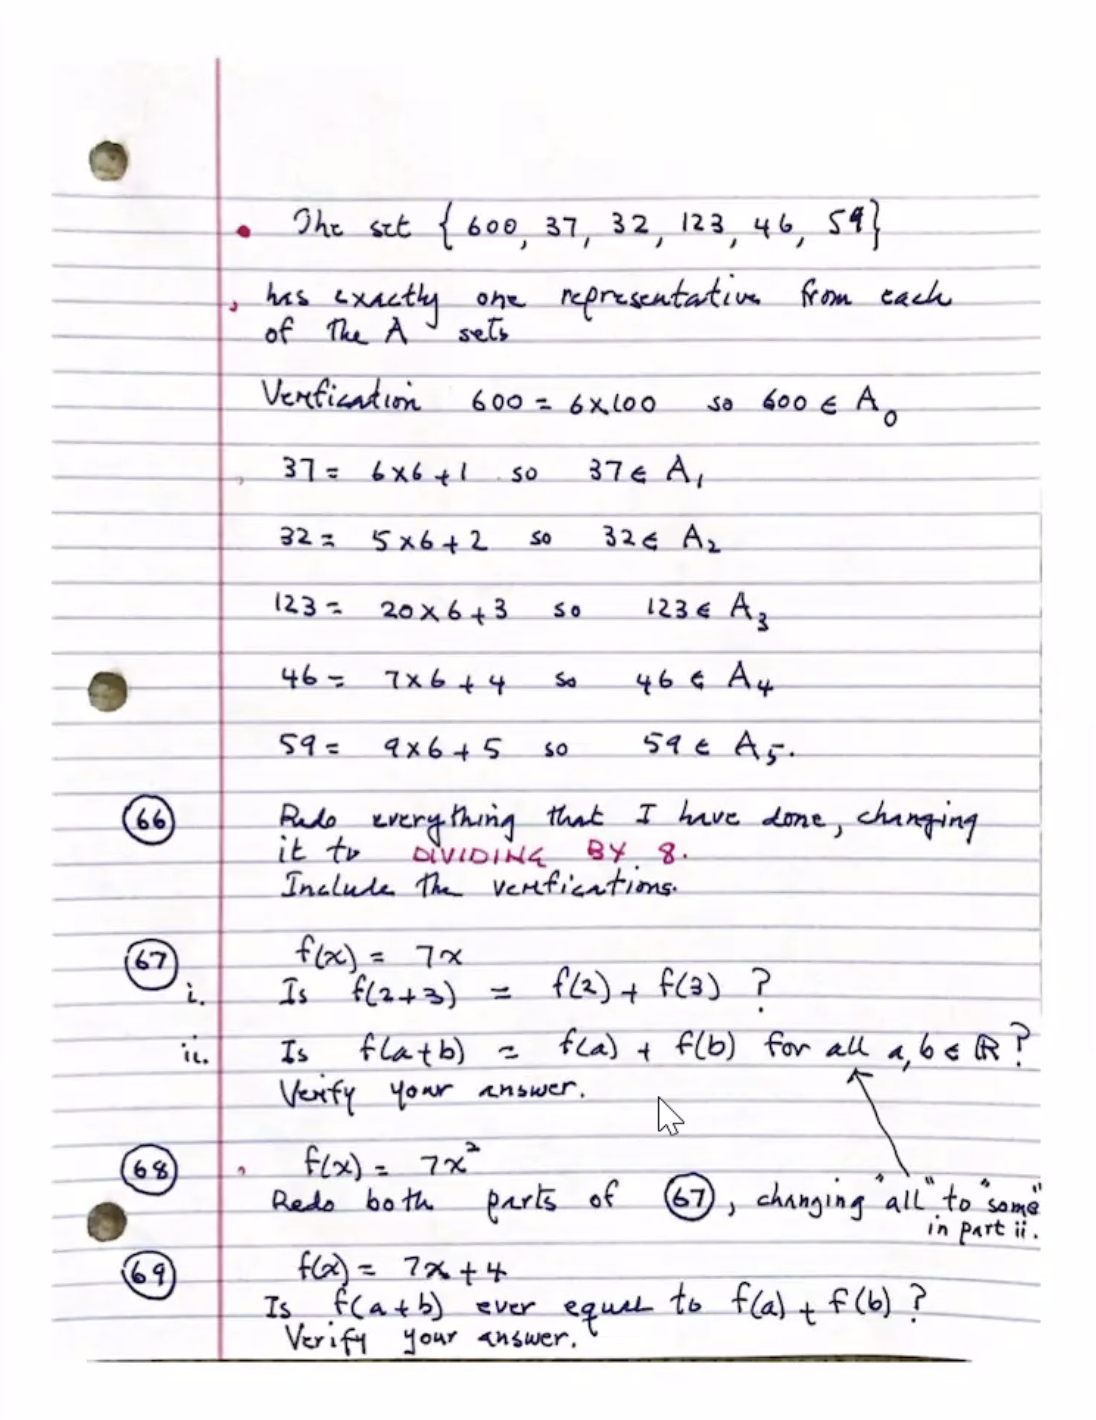 • The set { 600, 37, 32, 123, 46, 59}
has exactly one representative from each
of the A sets
Verfication 600 = 6x100 so 600 ∈ A₀
37 = 6x6+1 so 37 ∈ A₁
32 = 5x6+2 so 32 ∈ A₂
123 = 20x6+3 so 123 ∈ A₃
46 = 7x6+4 so 46 ∈ A₄
59 = 9x6+5 so 59 ∈ A₅.
66 Redo everything that I have done, changing
it to DIVIDING BY 8.
Include the verifications.
67 f(x) = 7x
i. Is f(2+3) = f(2) + f(3) ?
ii. Is f(a+b) = f(a) + f(b) for all a, b ∈ ℝ ?
Verify your answer.
68 f(x) = 7x²
Redo both parts of 67, changing "all" to "some"
in part ii.
69 f(x) = 7x+4
Is f(a+b) ever equal to f(a) + f(b) ?
Verify your answer.